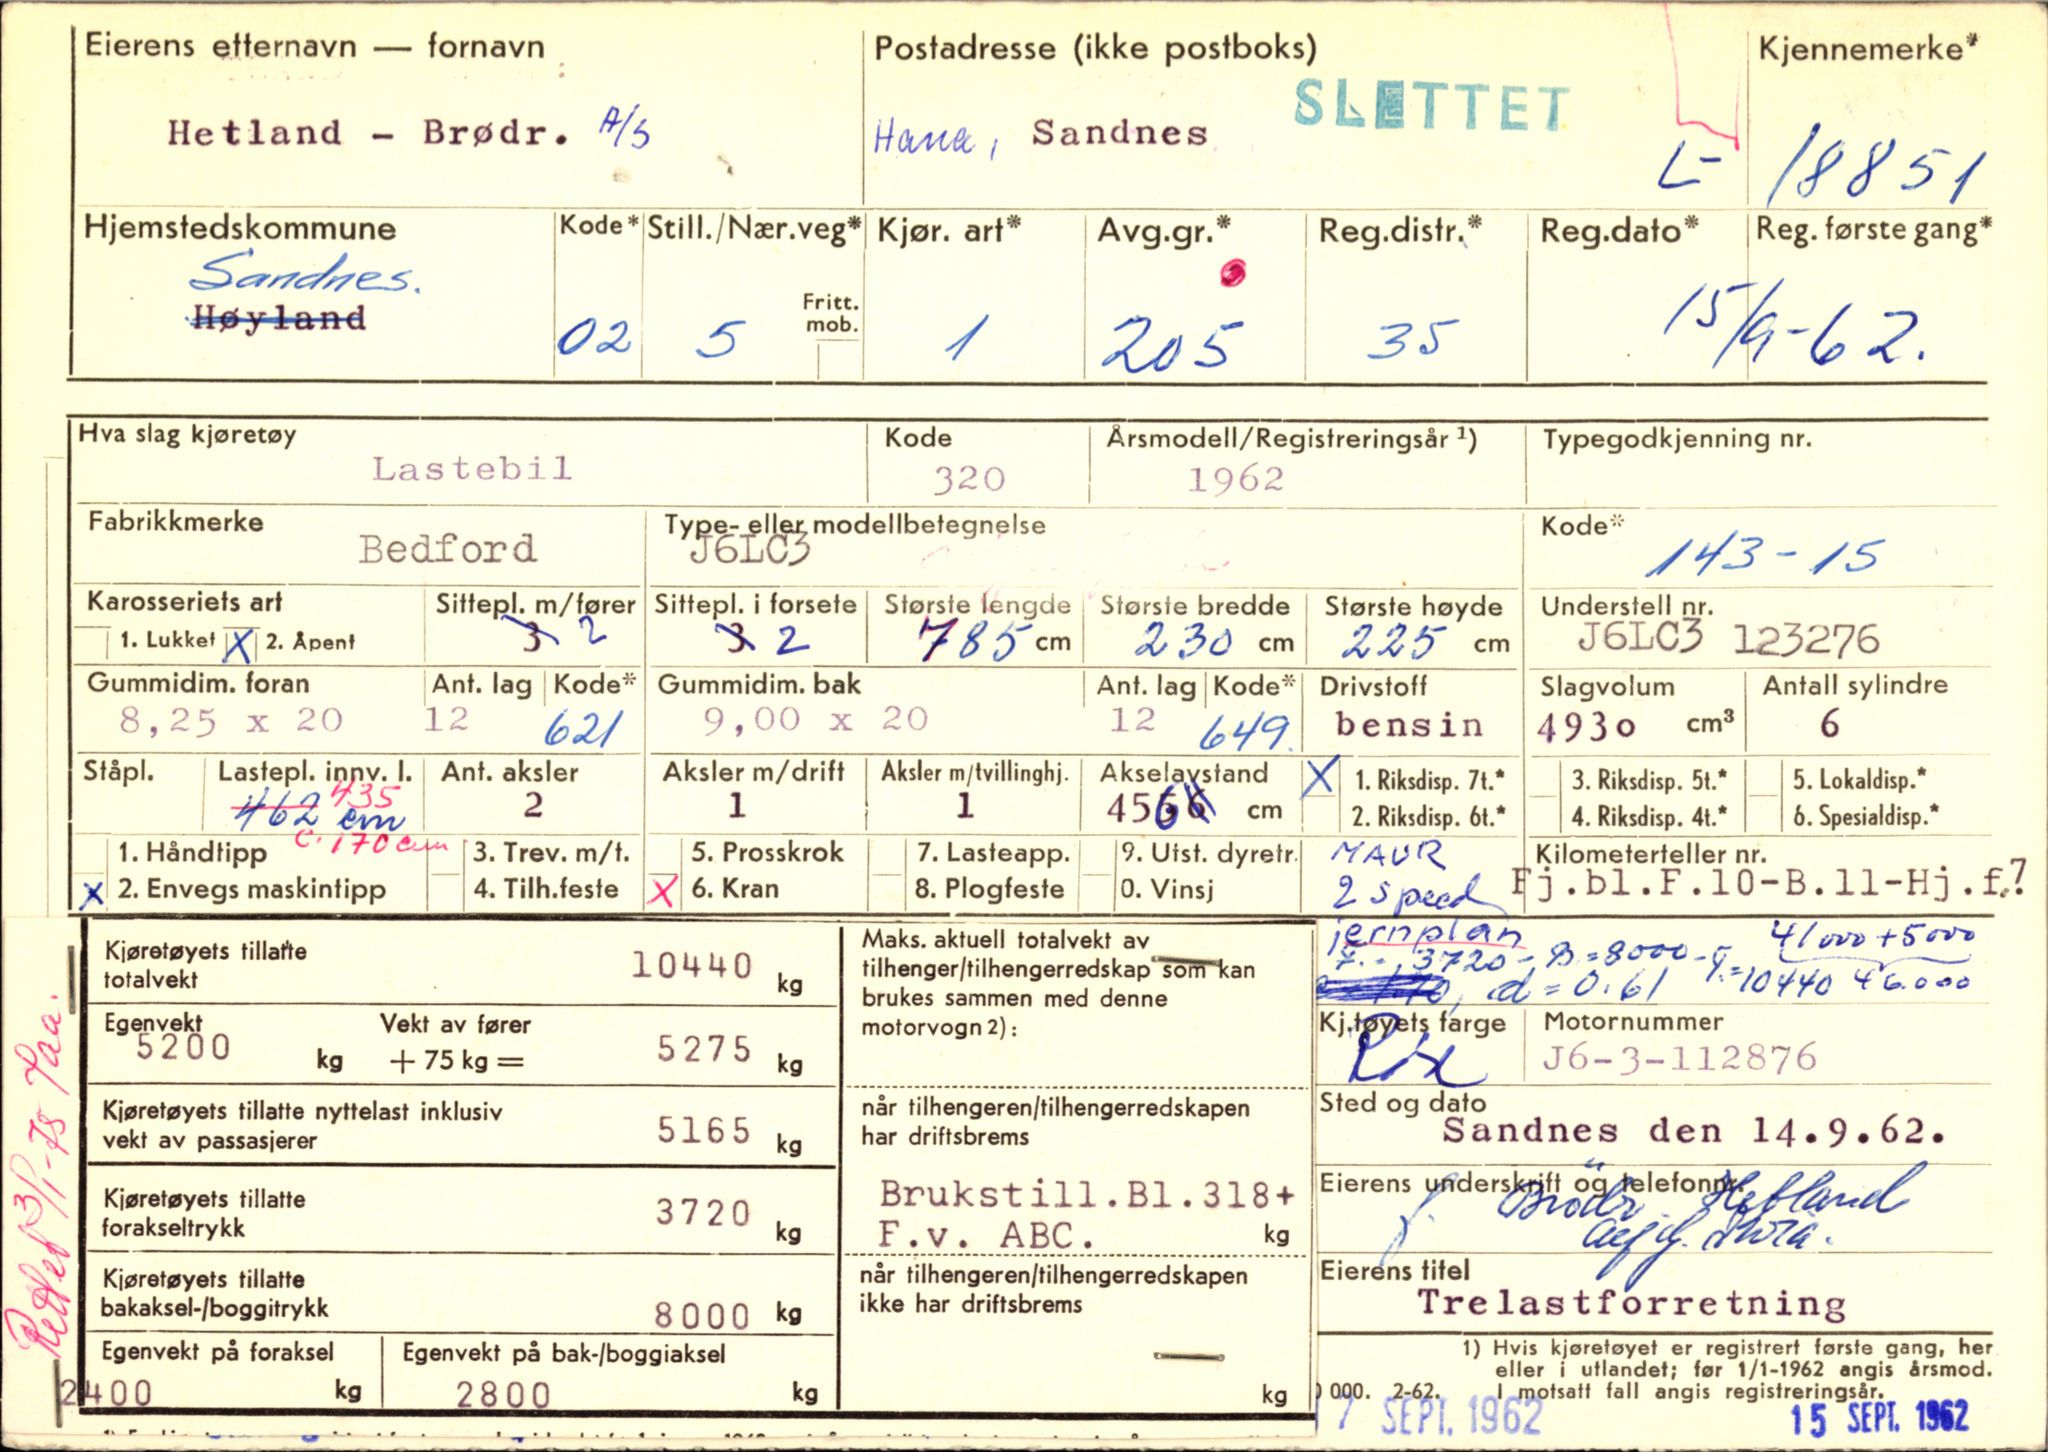 Eierens etternavn — fornavn
Postadresse (ikke postboks)
Kjennemerke*
SLETTET
Hetland - Brødr. A/S
Hana, Sandnes
L- 18851
Hjemstedskommune
Kode*
Still./Nær.veg*
Kjør. art*
Avg.gr.*
Reg.distr.*
Reg.dato*
Reg. første gang*
Sandnes.
Høyland
02
5
Fritt. mob.
1
205
35
15/9-62.
Hva slag kjøretøy
Kode
Årsmodell/Registreringsår ¹)
Typegodkjenning nr.
Lastebil
320
1962
Fabrikkmerke
Type- eller modellbetegnelse
Kode*
Bedford
J6LC3
143-15
Karosseriets art
Sittepl. m/fører
Sittepl. i forsete
Største lengde
Største bredde
Største høyde
Understell nr.
1. Lukket X 2. Åpent
3 2
3 2
785 cm
230 cm
225 cm
J6LC3 123276
Gummidim. foran
Ant. lag
Kode*
Gummidim. bak
Ant. lag
Kode*
Drivstoff
Slagvolum
Antall sylindre
8,25 x 20
12
621
9,00 x 20
12
649.
bensin
4930 cm³
6
Ståpl.
Lastepl. innv. l.
Ant. aksler
Aksler m/drift
Aksler m/tvillinghj.
Akselavstand
X 1. Riksdisp. 7t.*
3. Riksdisp. 5t.*
5. Lokaldisp.*
462 435 cm
2
1
1
cm
2. Riksdisp. 6t.*
4. Riksdisp. 4t.*
6. Spesialdisp.*
c. 170 cm
1. Håndtipp
3. Trev. m/t.
5. Prosskrok
7. Lasteapp.
9. Utst. dyretr.
MAUR
Kilometerteller nr.
X 2. Envegs maskintipp
4. Tilh.feste
X 6. Kran
8. Plogfeste
0. Vinsj
2 speed
Fj.bl.F.10-B.11-Hj.f.7
jernplan
41000+5000
3720 - B.=8000 - T.=10440 46.000
d=0.61
Kjøretøyets tillatte totalvekt
10440 kg
Maks. aktuell totalvekt av
tilhenger/tilhengerredskap som kan
brukes sammen med denne
motorvogn 2):
Egenvekt
Vekt av fører
5200 kg + 75 kg = 5275 kg
Kj.tøyets farge
Motornummer
J6-3-112876
Kjøretøyets tillatte nyttelast inklusiv
vekt av passasjerer
5165 kg
når tilhengeren/tilhengerredskapen
har driftsbrems
Sted og dato
Sandnes den 14.9.62.
Kjøretøyets tillatte
forakseltrykk
3720 kg
Brukstill.Bl.318+
F.v. ABC. kg
Eierens underskrift og telefonnr.
Brødr. Hetland
Kjøretøyets tillatte
bakaksel-/boggitrykk
8000 kg
når tilhengeren/tilhengerredskapen
ikke har driftsbrems
kg
Eierens titel
Trelastforretning
Egenvekt på foraksel
2400 kg
Egenvekt på bak-/boggiaksel
2800 kg
1) Hvis kjøretøyet er registrert første gang, her
eller i utlandet; før 1/1-1962 angis årsmod.
I motsatt fall angis registreringsår.
000. 2-62.
7 SEPT. 1962
15 SEPT. 1962
Rettet 3/1-75